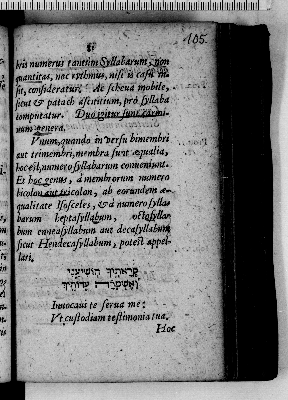 81 105.
bris numerus tantùm Syllabarum, non
quantitas, nec rythmus, nisi is casu in-
sit, consideratur. At scheva mobile,
sicut & patach ascititium, pro syllaba
computatur. Duo igitur sunt carmi-
num genera.
Unum, quando in versu bimembri
aut trimembri, membra sunt æqualia,
hoc est, numero syllabarum conveniunt.
Et hoc genus, à membrorum numero
bicolon aut tricolon, ab eorundem æ-
qualitate Isosceles, & à numero sylla-
barum heptasyllabum, octosylla-
bum enneasyllabum aut decasyllabum
sicut Hendecasyllabum, potest appel-
lari.
קראתיך הושיעני
ואשמרה עדותיך
Invocavi te serva me:
Ut custodiam testimonia tua.
Hoc